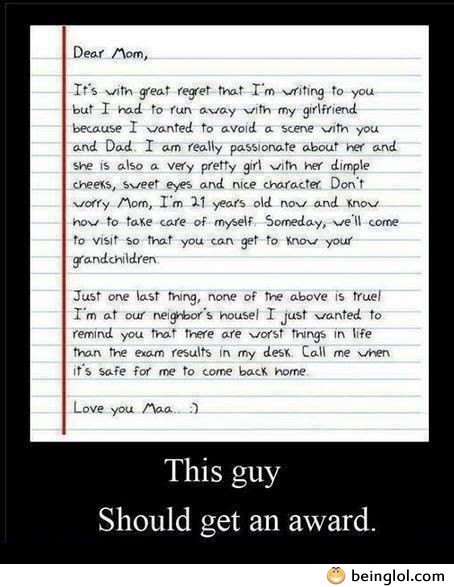 Dear Mom,
It's with great regret that I'm writing to you
but I had to run away with my girlfriend
because I wanted to avoid a scene with you
and Dad. I am really passionate about her and
she is also a very pretty girl with her dimple
cheeks, sweet eyes and nice character. Don't
worry Mom, I'm 21 years old now and know
how to take care of myself. Someday, we'll come
to visit so that you can get to know your
grandchildren.
Just one last thing, none of the above is true!
I'm at our neighbor's house! I just wanted to
remind you that there are worst things in life
than the exam results in my desk. Call me when
it's safe for me to come back home.
Love you Maa.. :)
This guy
Should get an award.
beinglol.com